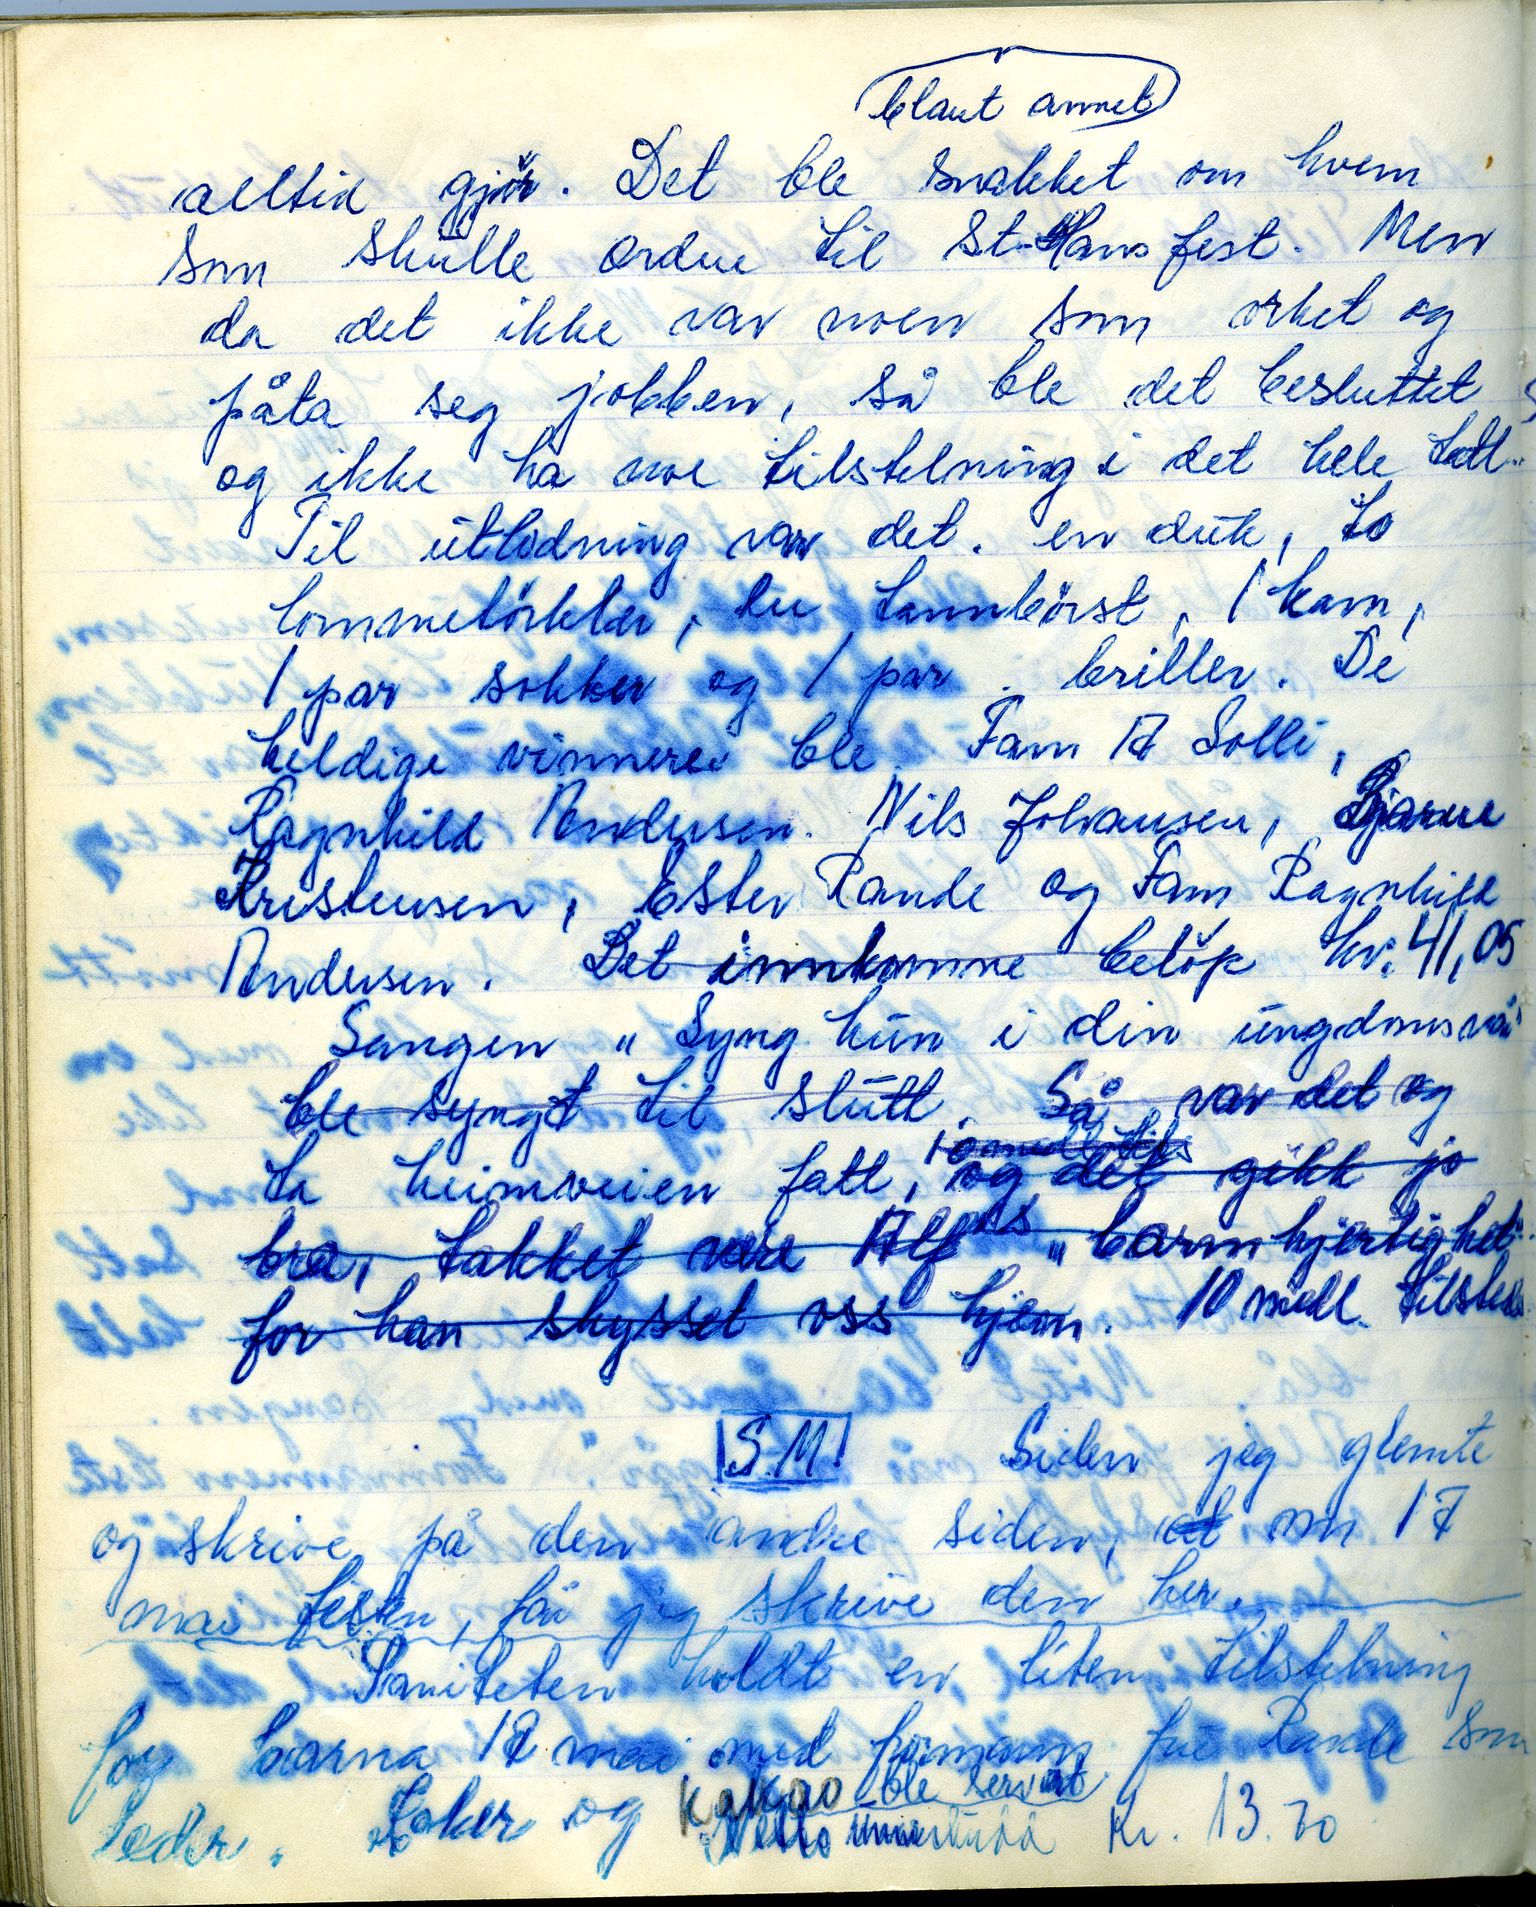 blant annet
alltid gjør. Det ble snakket om hvem
som skulle ordne til St. Hans fest. Men
da det ikke var noen som orket og
påta seg jobben, så ble det besluttet
og ikke ha noe tilstelning i det hele tatt.
Til utlodning var det. en duk, to
lommetörkler, en tannbörst, 1 kam,
1 par sokker og 1 par briller. De
heldige vinnerer ble Fam A Solli,
Ragnhild Andersen. Nils Johansen, Bjarne
Kristensen, Ester Rande og Fam Ragnhild
Andersen. Det innkomne belöp kr. 41,05
Sangen "Syng kun i din ungdoms vår
ble syngt til slutt. Så var det og
10 medl. tils
ta heimveien fatt, og det gikk jo
bra, takket være Alf "barmhjertighet"
for han skysset oss hjem. 10 medl. tilstede
S.M. Siden jeg glemte
og skrive på den andre siden, at om 17
mai festen, får jeg skrive den her.
Saniteten holdt en liten tilstelning
for barna 17 mai med formann fru Rande som
leder. Boker og kakao ble servert
Netto Kr. 13.70